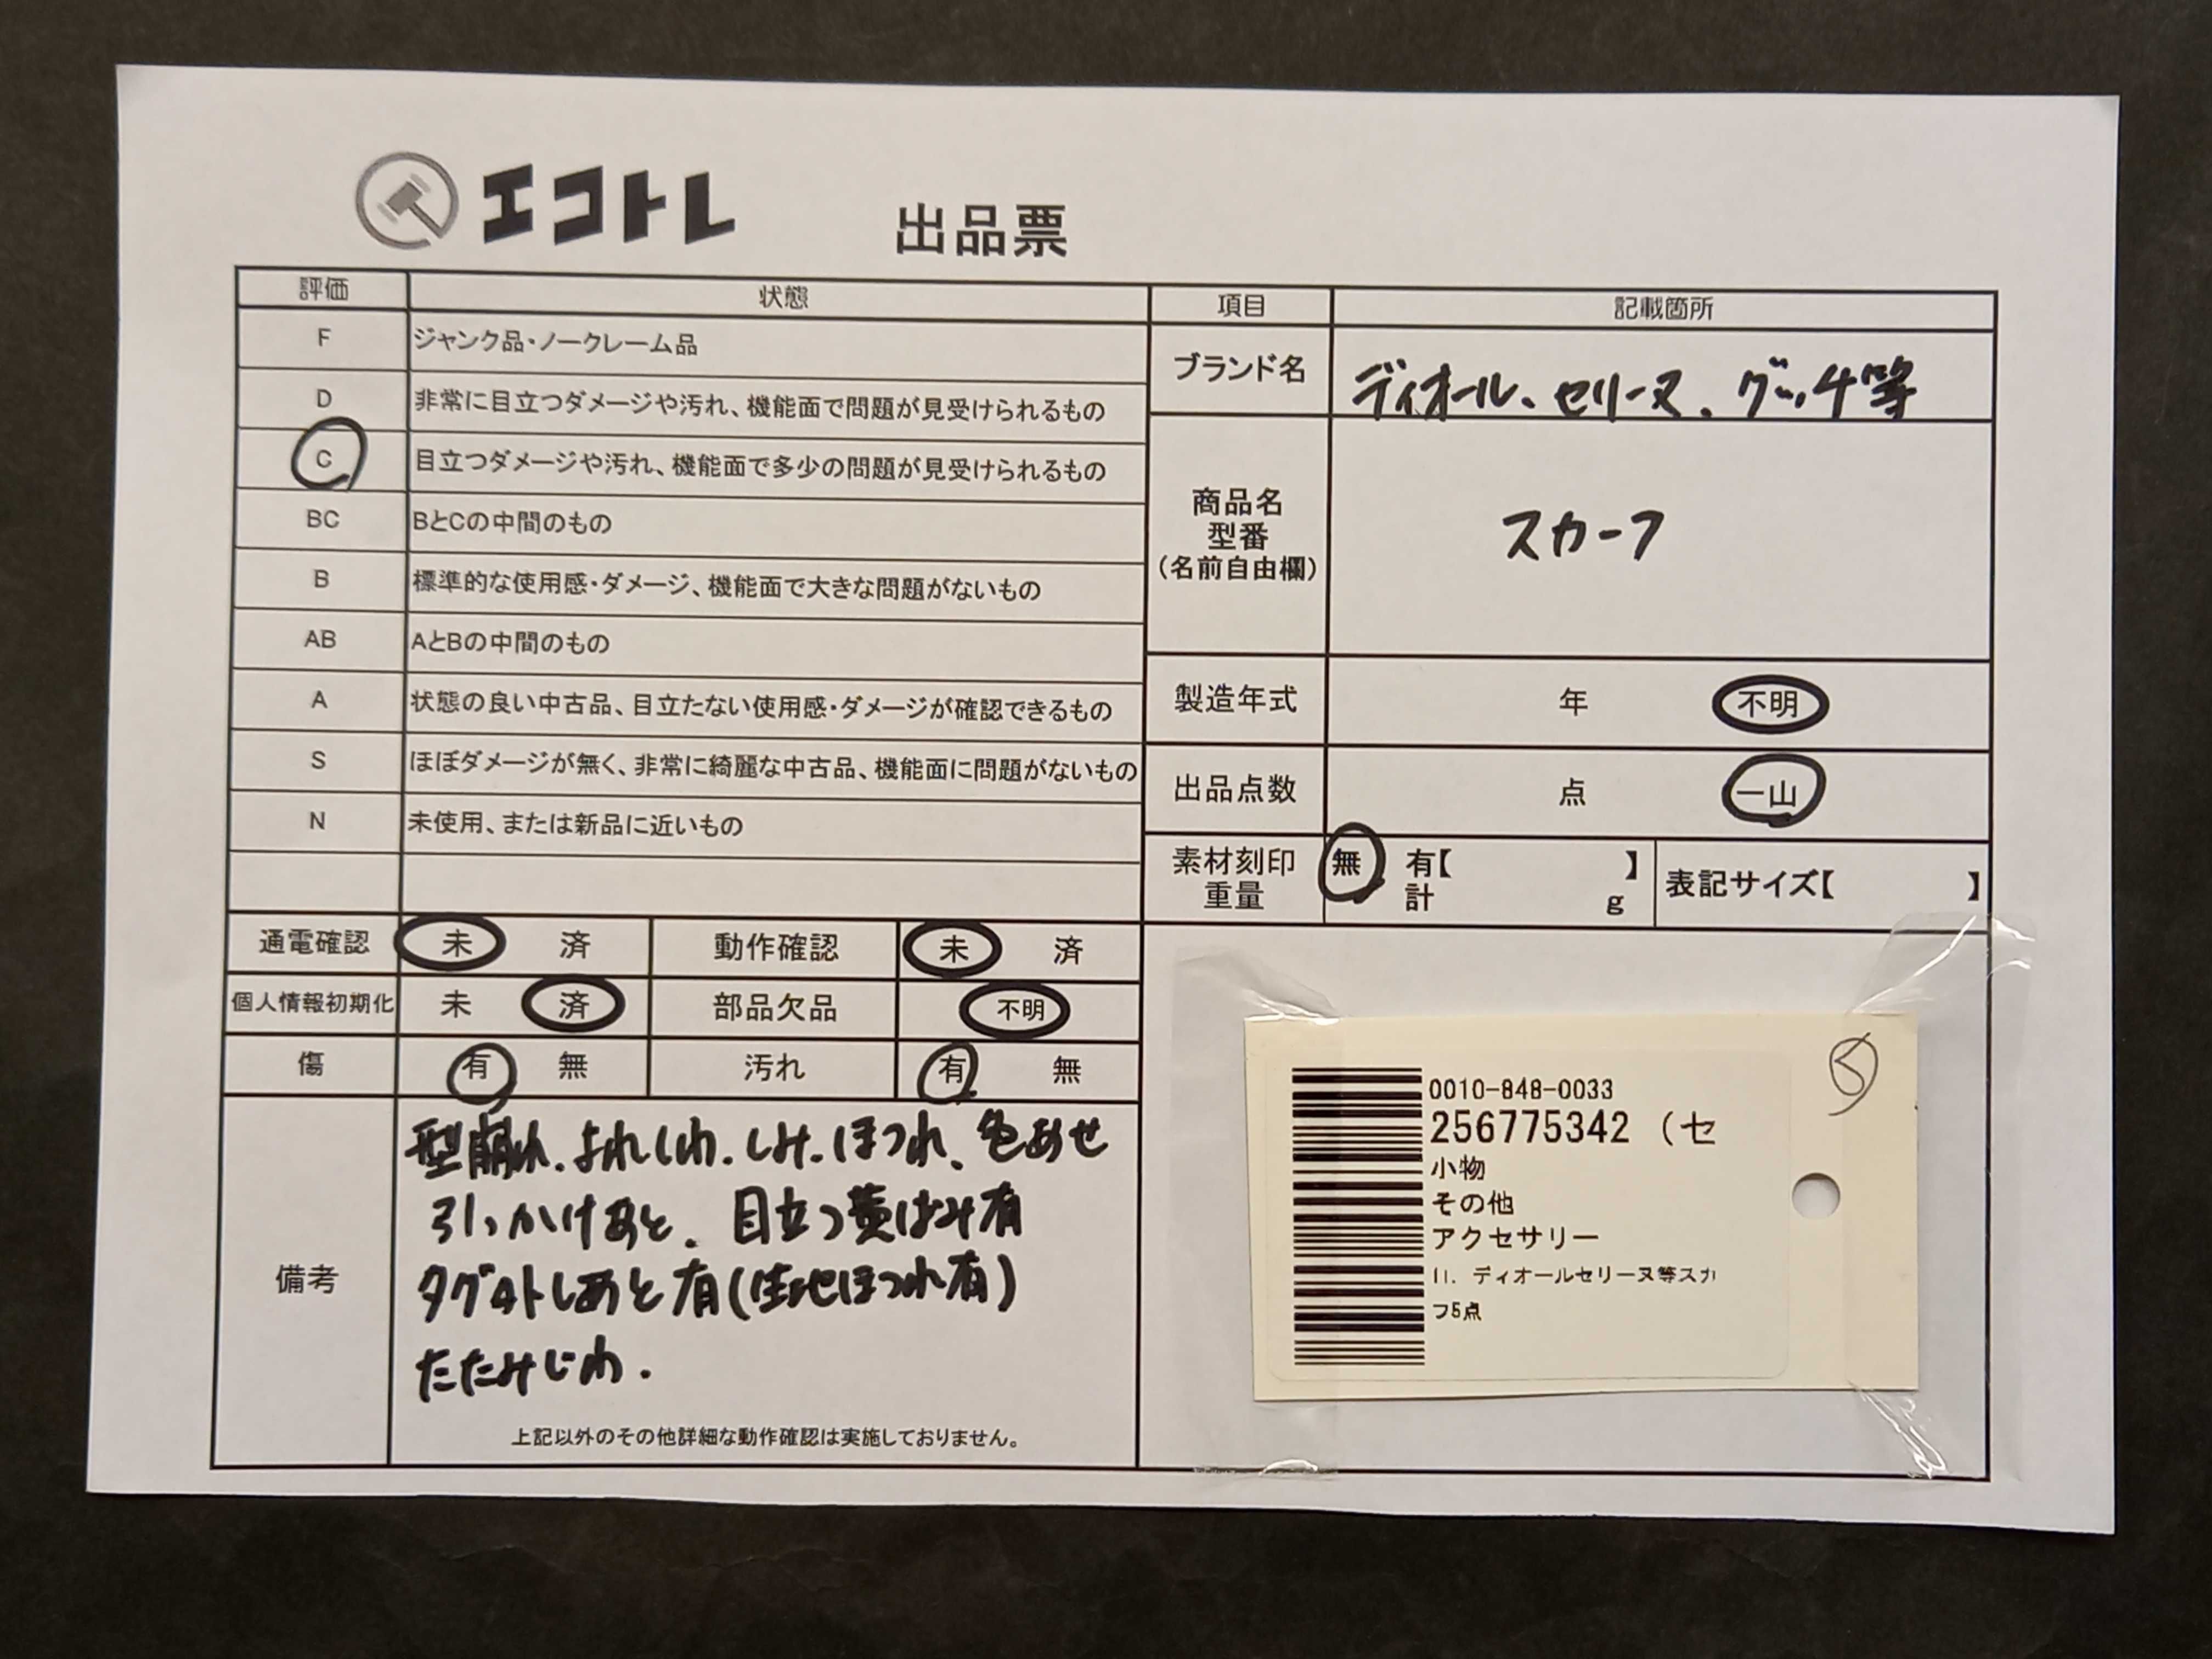 エコトレ
出品票
評価 状態
F ジャンク品・ノークレーム品
D 非常に目立つダメージや汚れ、機能面で問題が見受けられるもの
C 目立つダメージや汚れ、機能面で多少の問題が見受けられるもの
BC BとCの中間のもの
B 標準的な使用感・ダメージ、機能面で大きな問題がないもの
AB AとBの中間のもの
A 状態の良い中古品、目立たない使用感・ダメージが確認できるもの
S ほぼダメージが無く、非常に綺麗な中古品、機能面に問題がないもの
N 未使用、または新品に近いもの
項目 記載箇所
ブランド名 ディオール、セリーヌ、グッチ等
商品名
型番
(名前自由欄)
スカーフ
製造年式 年 不明
出品点数 点 一山
素材刻印 無 有【 】
重量 計 g
表記サイズ【 】
通電確認 未 済 動作確認 未 済
個人情報初期化 未 済 部品欠品 不明
傷 有 無 汚れ 有 無
備考
型崩れ、よれしわ、しみ、ほつれ、色あせ
引っかけあと、目立つ黄ばみ有
タグ外しあと有(生地ほつれ有)
たたみじわ.
上記以外のその他詳細な動作確認は実施しておりません。
0010-848-0033
256775342 (セ
小物
その他
アクセサリー
11. ディオールセリーヌ等スカ
フ5点